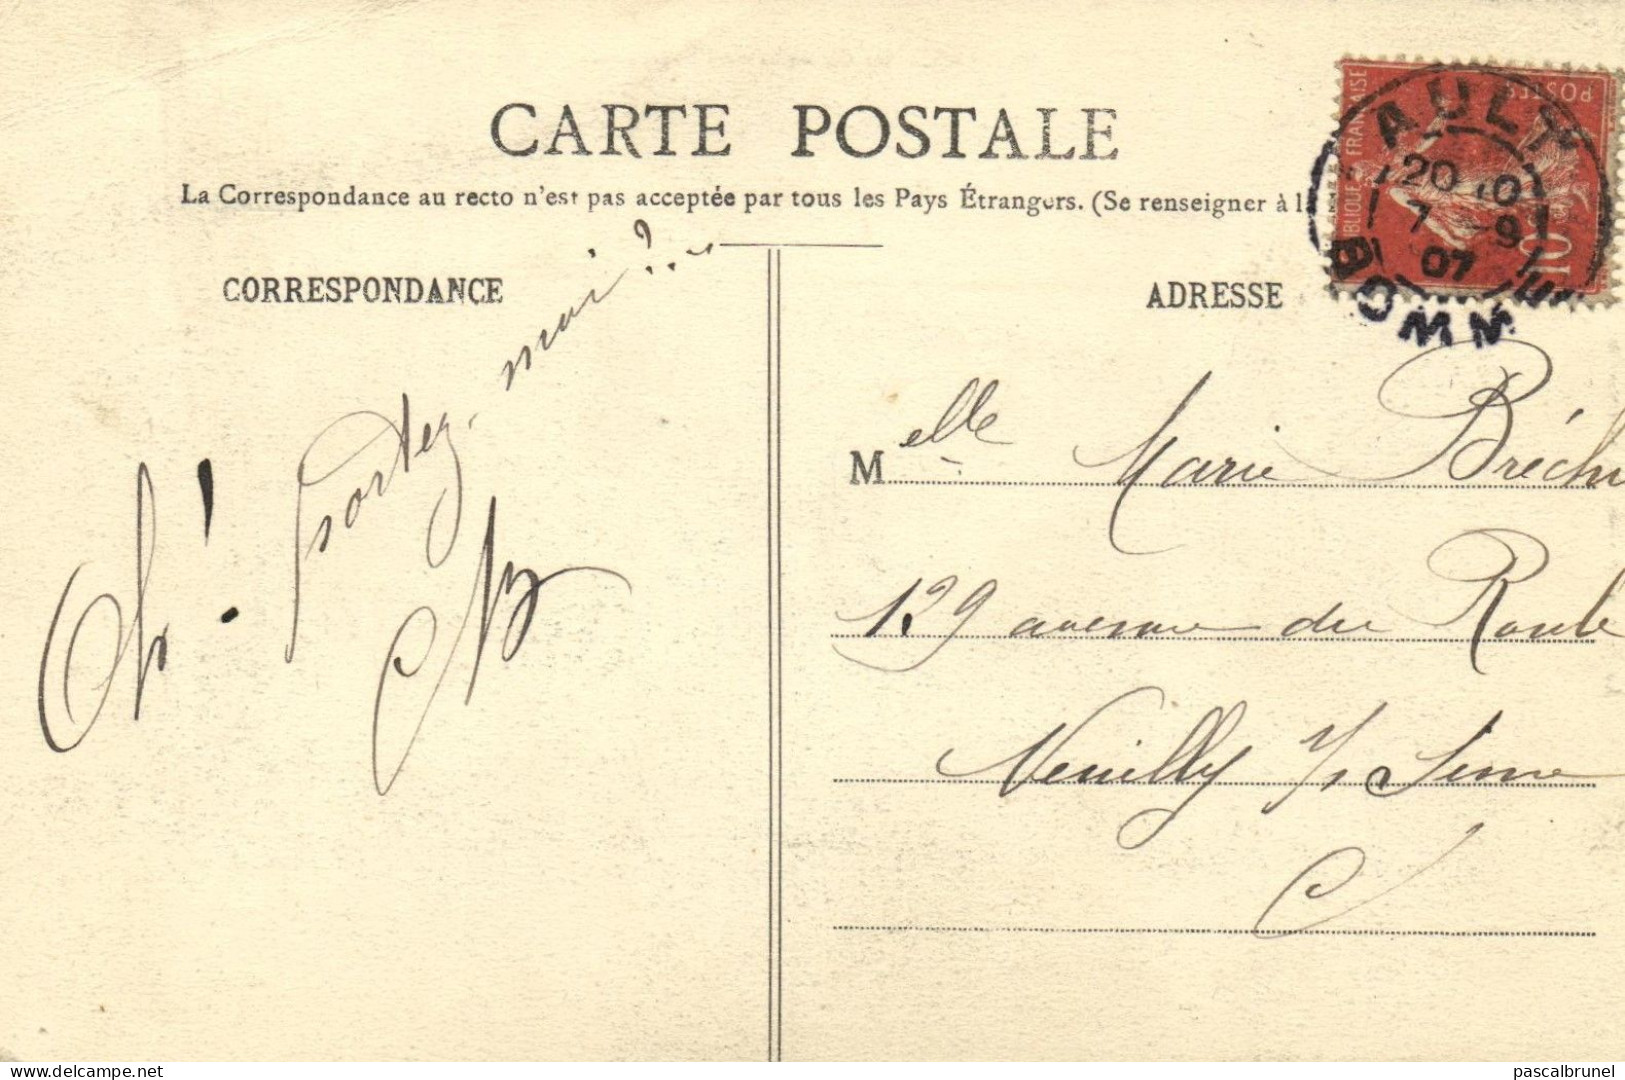 CARTE POSTALE
La Correspondance au recto n'est pas acceptée par tous les Pays Étrangers. (Se renseigner à la
CORRESPONDANCE
ADRESSE
RÉPUBLIQUE FRANÇAISE
POSTES
10
AULT
20 10
7 -9
07
SOMME
Oh! portez-moi?..
Melle Marie Bréch
129 avenue du Roule
Neuilly s/ Seine
delcampe.net
pascalbrunel